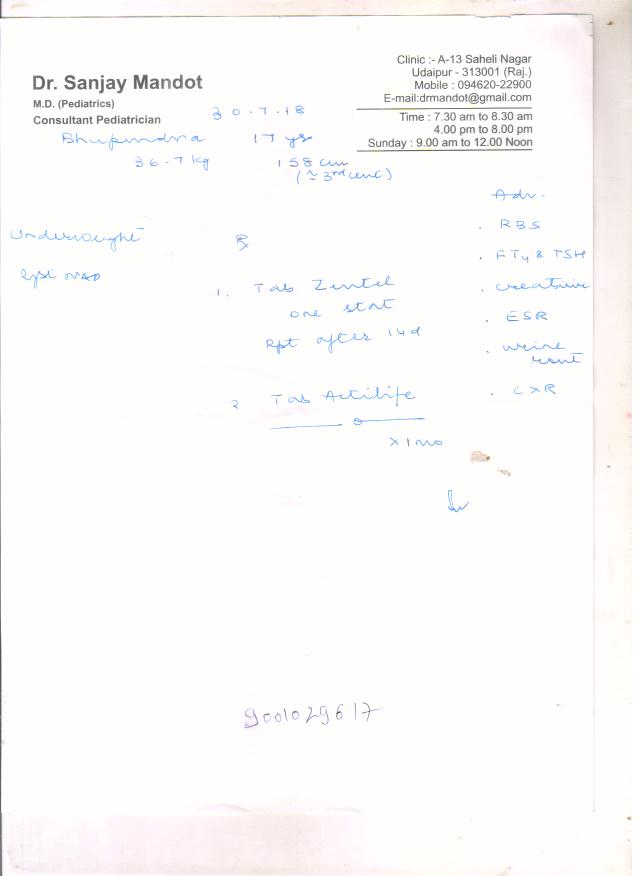 Dr. Sanjay Mandot
M.D. (Pediatrics)
Consultant Pediatrician
Clinic :- A-13 Saheli Nagar
Udaipur - 313001 (Raj.)
Mobile : 094620-22900
E-mail:drmandot@gmail.com
Time : 7.30 am to 8.30 am
4.00 pm to 8.00 pm
Sunday : 9.00 am to 12.00 Noon
30.7.18
Bhupindra 17 yrs
36.7 kg 158 cm
(≃ 3rd cent)
Adv.
Underweight
℞
. RBS
. FT4 & TSH
. creatinine
. ESR
. urine rout
. CXR
1. Tab Zentel
one stat
Rpt after 14d
2 Tab Actilife
x 1 mo
9001029617